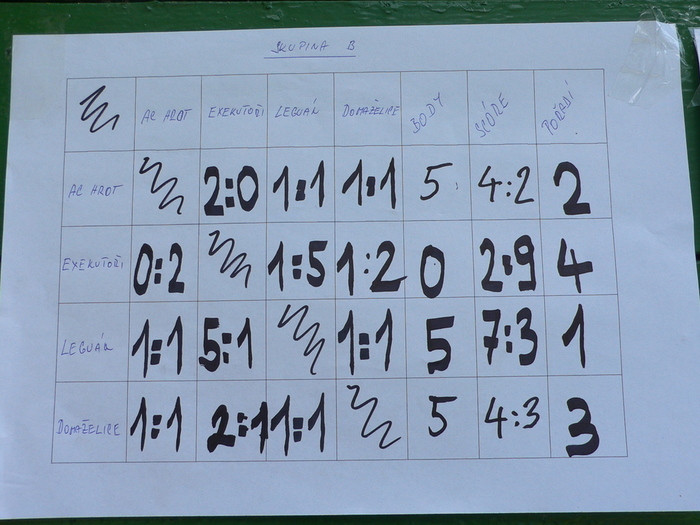 SKUPINA B
AC HROT EXEKUTOŘI LEGUÁN DOMAŽELICE BODY SCÓRE POŘADÍ
AC HROT 2:0 1:1 1:1 5 4:2 2
EXEKUTOŘI 0:2 1:5 1:2 0 2:9 4
LEGUÁN 1:1 5:1 1:1 5 7:3 1
DOMAŽELICE 1:1 2:1 1:1 5 4:3 3